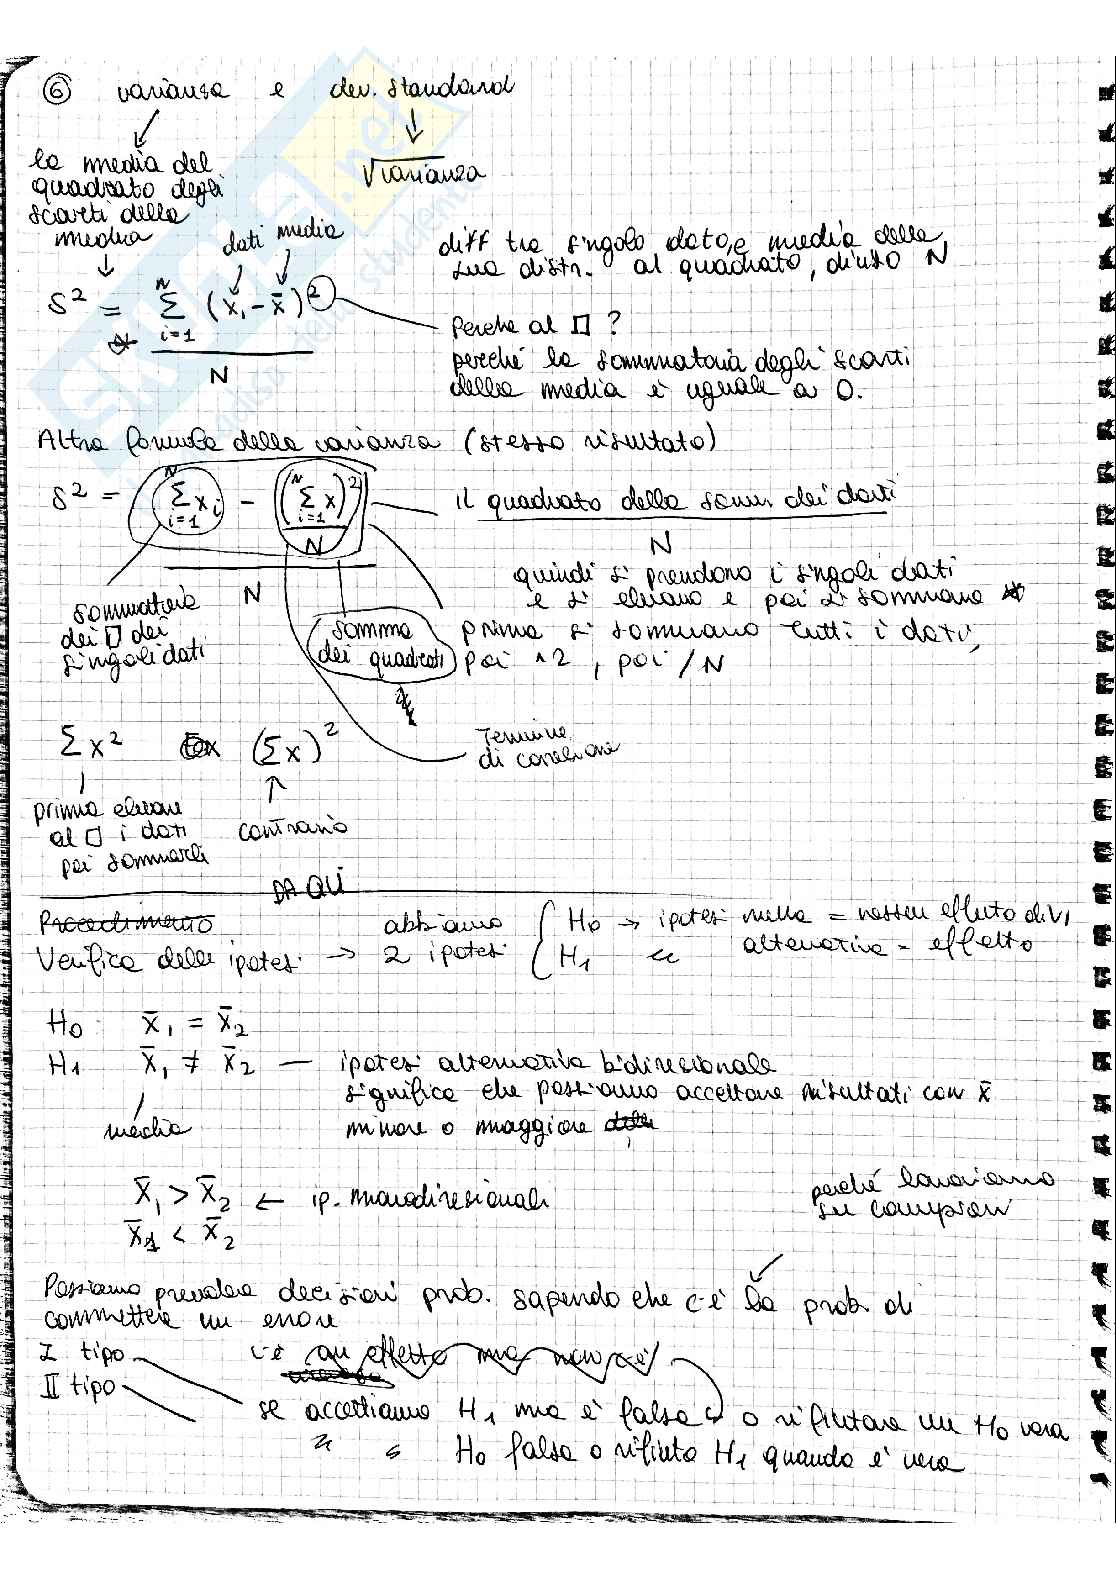 ⑥ varianza e dev. standard
la media del
quadrato degli
scarti della
media
√varianza
dati media
S² = Σ (xᵢ - x̄)²
N
i=1
N
diff tra singolo dato, e media della
sua distr. al quadrato, diviso N
Perché al □ ?
perché la sommatoria degli scarti
della media è uguale a 0.
Altra formula della varianza (stesso risultato)
S² = Σ xᵢ - (Σ x)²
N
i=1
N
i=1
N
N
il quadrato della somm. dei dati
N
sommatoria
dei □ dei
singoli dati
somma
dei quadrati
quindi si prendono i singoli dati
e si elevano e poi si sommano
prima si sommano tutti i dati,
poi ^2, poi /N
Termine
di correzione
Σx² (Σx)²
prima elevare
al □ i dati
poi sommarli
contrario
DA QUI
Procedimento
Verifica delle ipotesi → abbiamo
2 ipotesi
H0 → ipotesi nulla = nessun effetto di V1
H1 " alternativa = effetto
H0 x̄₁ = x̄₂
H1 x̄₁ ≠ x̄₂ — ipotesi alternativa bidirezionale
significa che possiamo accettare risultati con x̄
minore o maggiore
media
x̄₁ > x̄₂ ← ip. monodirezionali
x̄1 < x̄₂
perché lavoriamo
su campioni
Possiamo prendere decisioni prob. sapendo che c'è la prob. di
commettere un errore
I tipo
II tipo
c'è un effetto ma non c'è
se accettiamo H1 ma è falsa o rifiutare un H0 vera
" " H0 falsa o rifiuto H1 quando è vera